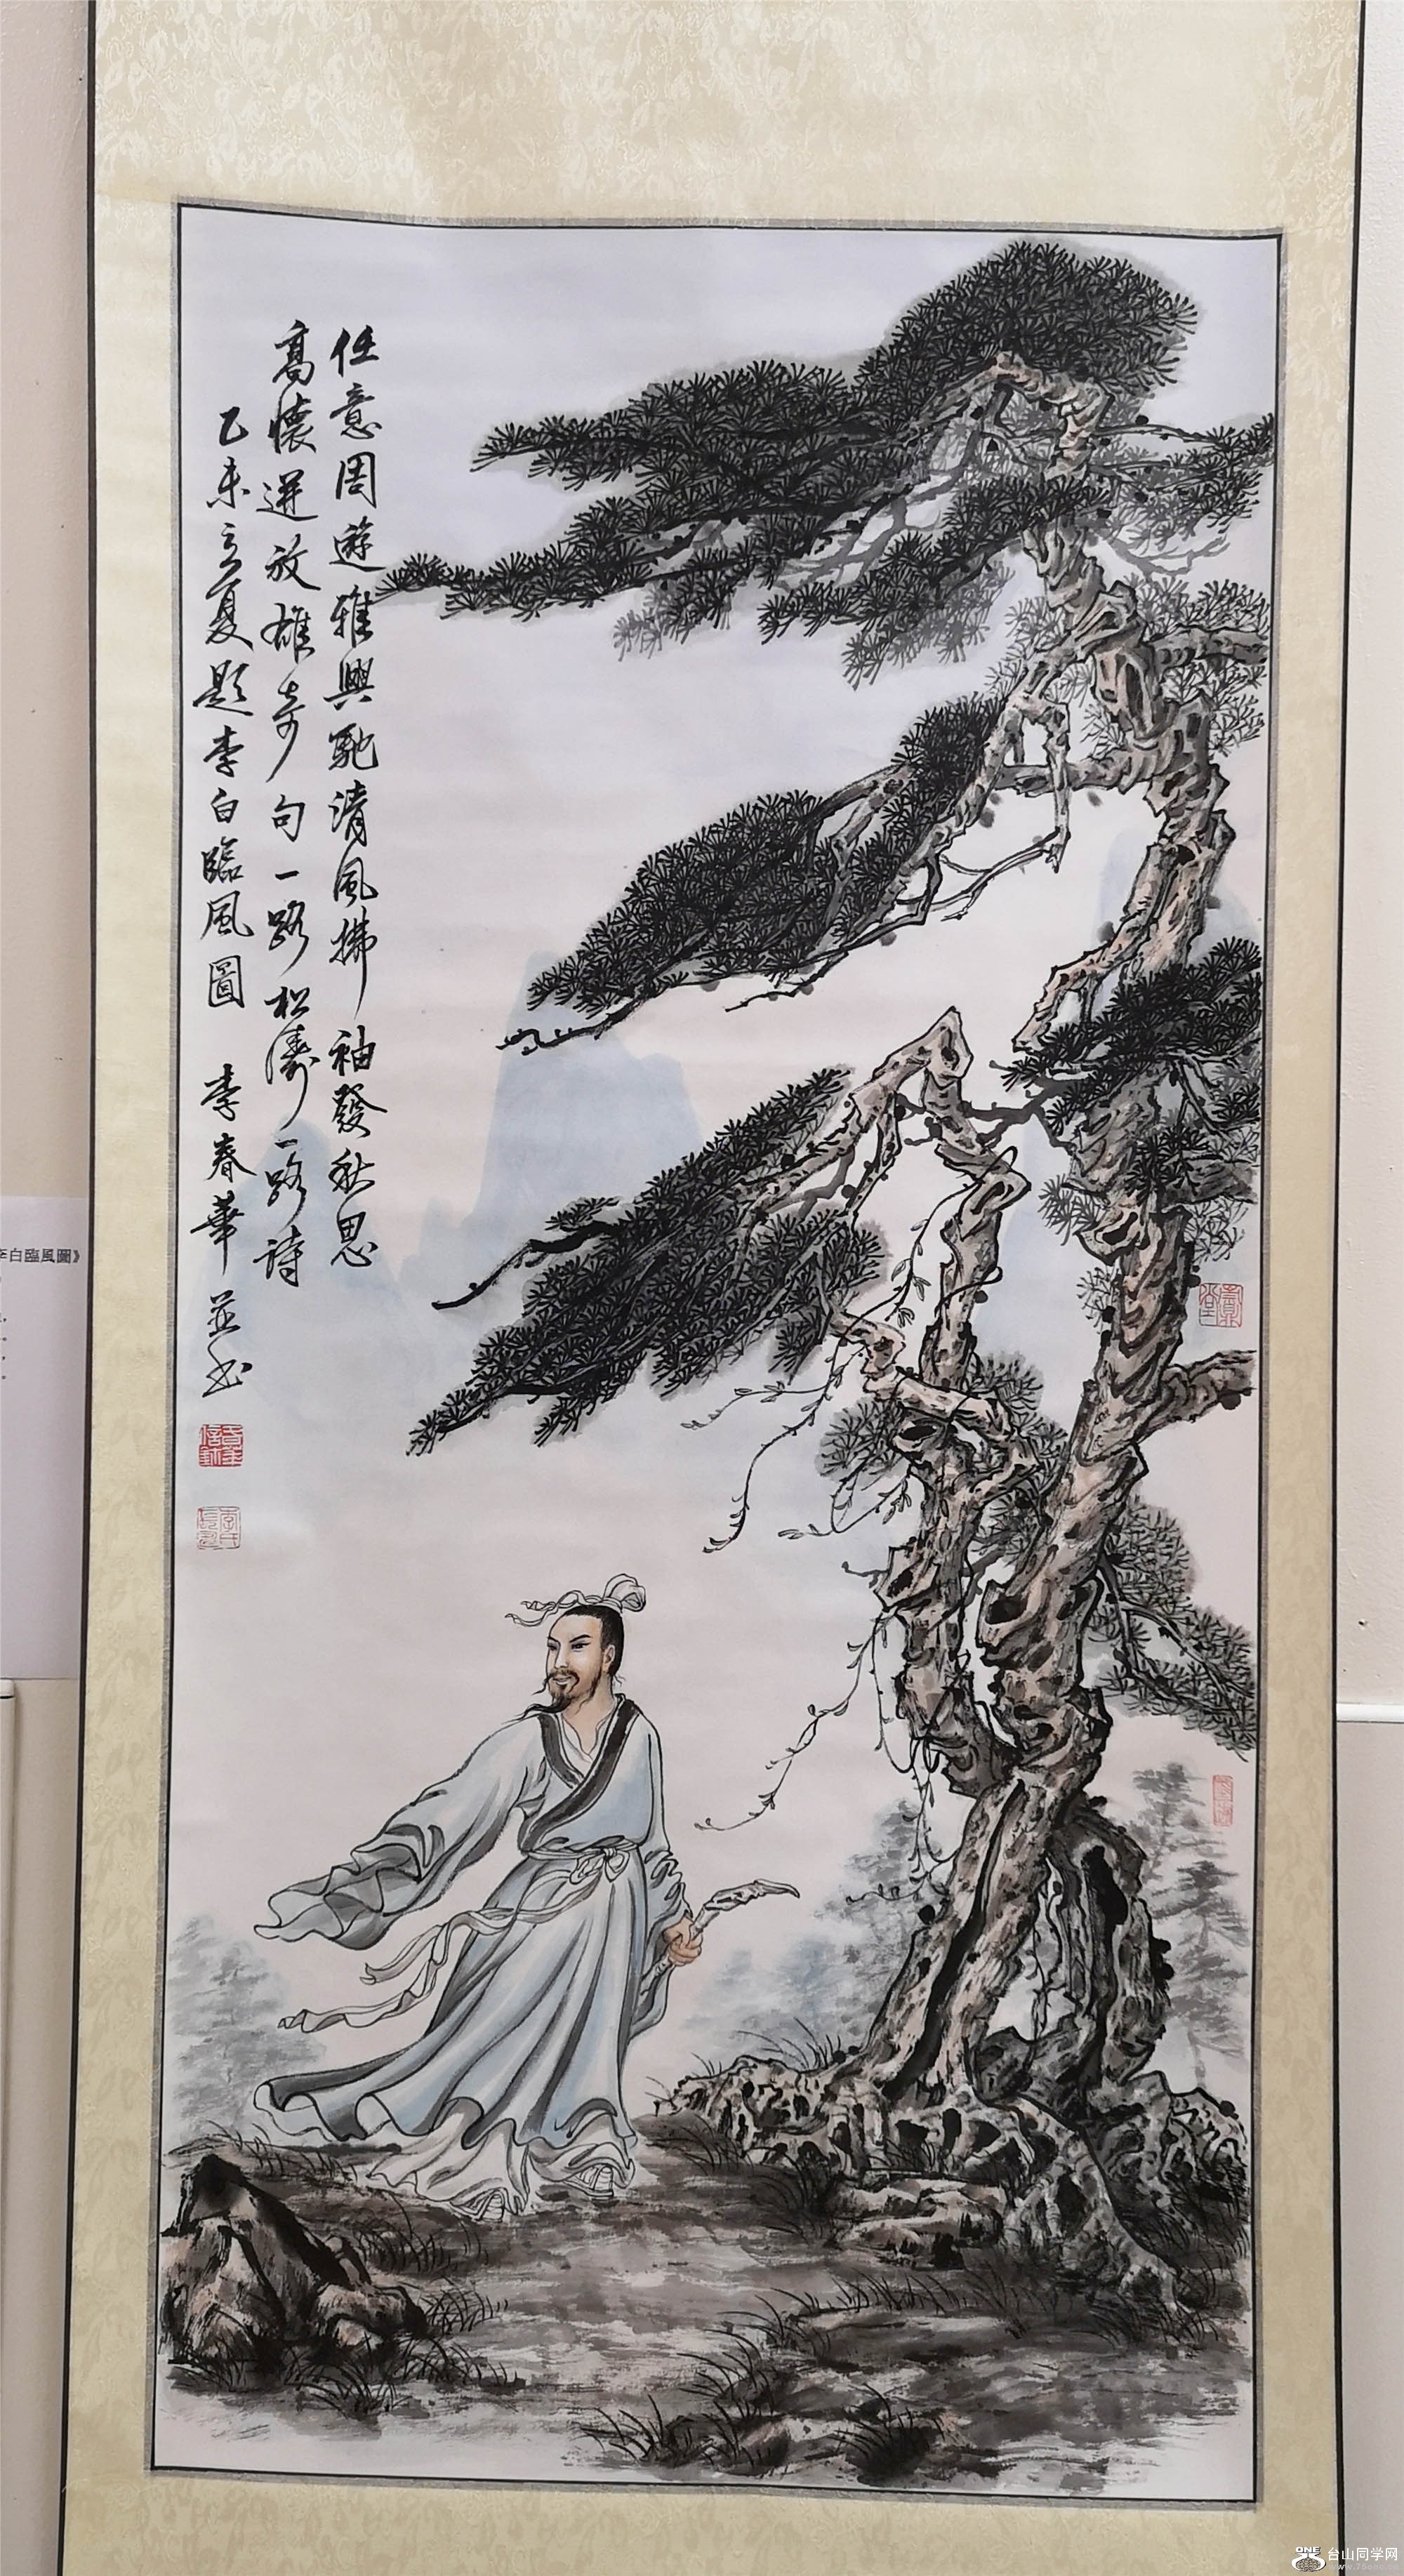 任意周遊雅興馳清風拂袖發秋思
高懷迸放雄奇句一路松濤一路詩
乙未立夏題李白臨風圖 李春華並書
李白臨風圖》
ONE 台山同学网